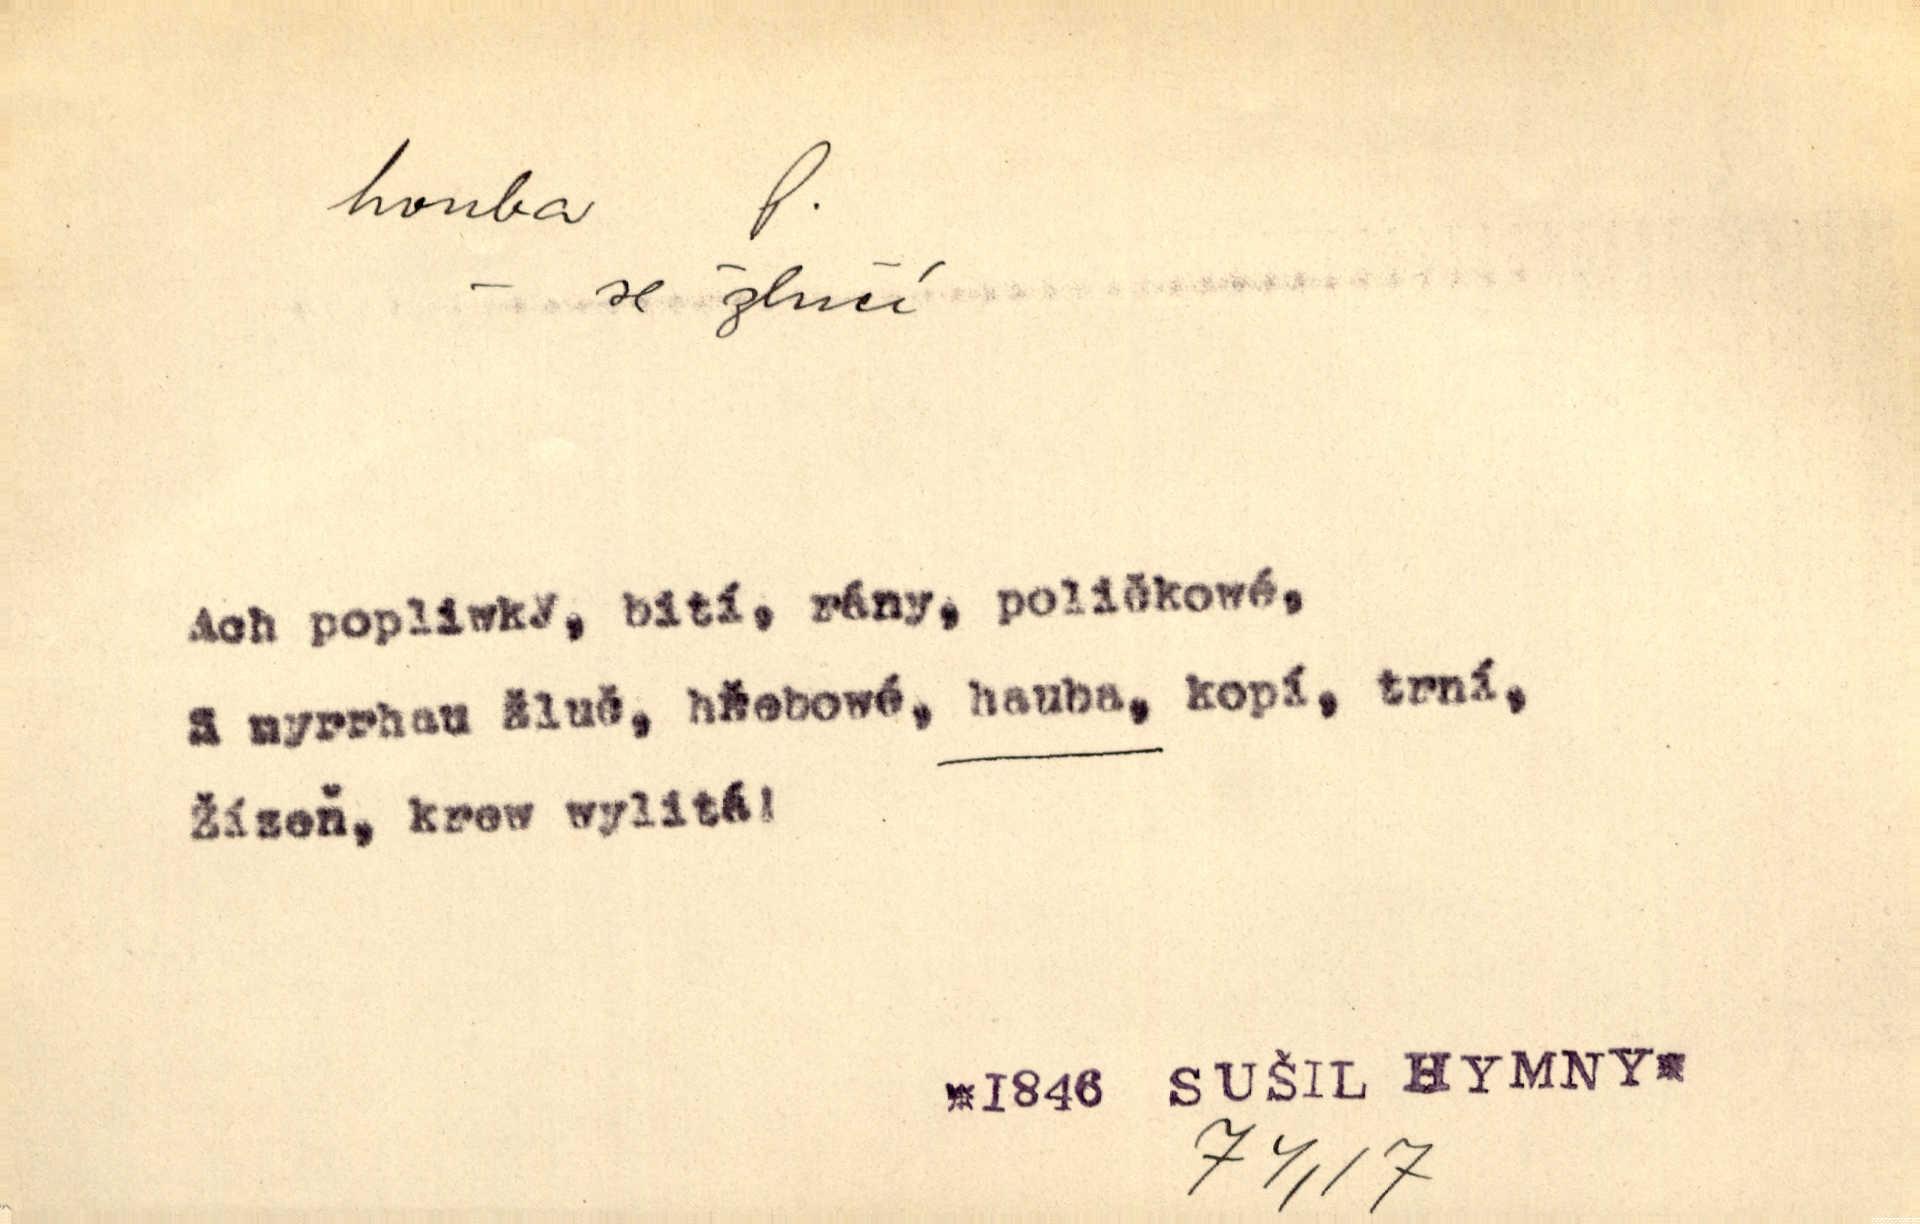 houba P.
– se žlučí
Ach popliwky, bití, rány, poličkowé,
S myrrhau žluč, hřebowé, hauba, kopí, trní,
Žízeň, krew wylitá!
*1846 SUŠIL HYMNY*
74/17